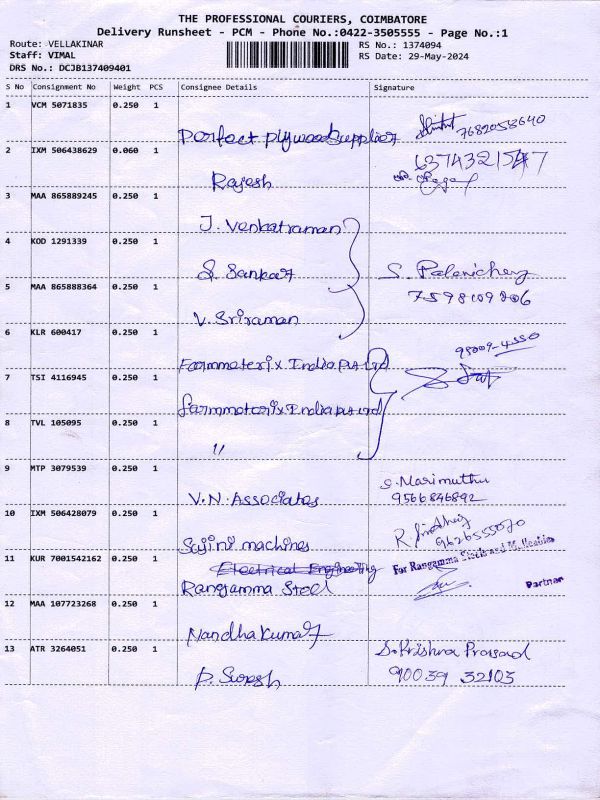 THE PROFESSIONAL COURIERS, COIMBATORE
Delivery Runsheet - PCM - Phone No.:0422-3505555 - Page No.:1
Route: VELLAKINAR RS No.: 1374094
Staff: VIMAL RS Date: 29-May-2024
DRS No.: DCJB137409401
S No Consignment No Weight PCS Consignee Details Signature
1 VCM 5071835 0.250 1
Perfect plywood Supplier 7682053640
2 IXM 506438629 0.060 1
Rajesh
3 MAA 865889245 0.250 1
J. Venkatraman
4 KOD 1291339 0.250 1
S. Sankar S. Palanichamy
5 MAA 865888364 0.250 1
V. Sriraman
6 KLR 600417 0.250 1
Farmmeterix India Pvt Ltd
7 TSI 4116945 0.250 1
farmmeterix India Pvt Ltd
8 TVL 105095 0.250 1
"
9 MTP 3079539 0.250 1 S. Marimuthu
V.N. Associates 9566846892
10 IXM 506428079 0.250 1
Sojini machines 9626555070
11 KUR 7001542162 0.250 1 For Rangamma Steels and Malleables
Electrical Engineering
Rangamma Steel Partner
12 MAA 107723268 0.250 1
Nandhakumar
13 ATR 3264051 0.250 1 S. Krishna Prasad
P. Suresh 90039 32103